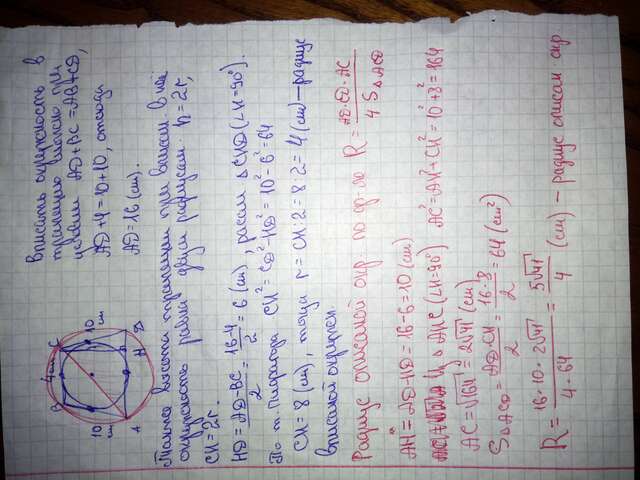 B
4 см
C
10
см
10
см
A
H
D
Вписать окружность в
трапецию можно при
условии AD+BC=AB+CD,
AD+4=10+10, отсюда
AD=16 (см).
высота трапеции при впис. в неё
окружность равна двум радиусам h=2r,
CH=2r.
HD=AD-BC/2=16-4/2=6 (см), рассм. ΔCHD (∠H=90°).
По т. Пифагора CH²=CD²-HD²=10²-6²=64
CH=8 (см), тогда r=CH:2=8:2=4(см)-радиус
вписаной окружности.
Радиус описаной окр. по ф-ле R=AD·CD·AC/4SΔACD
AH=AD-HD=16-6=10 (см)
Из ΔAHC (∠H=90°) AC²=AH²+CH²=10²+8²=164
AC=√164=2√41 (см)
SΔACD=AD·CH/2=16·8/2=64 (см²)
R=16·10·2√41/4·64=5√41/4 (см) – радиус описан. окр